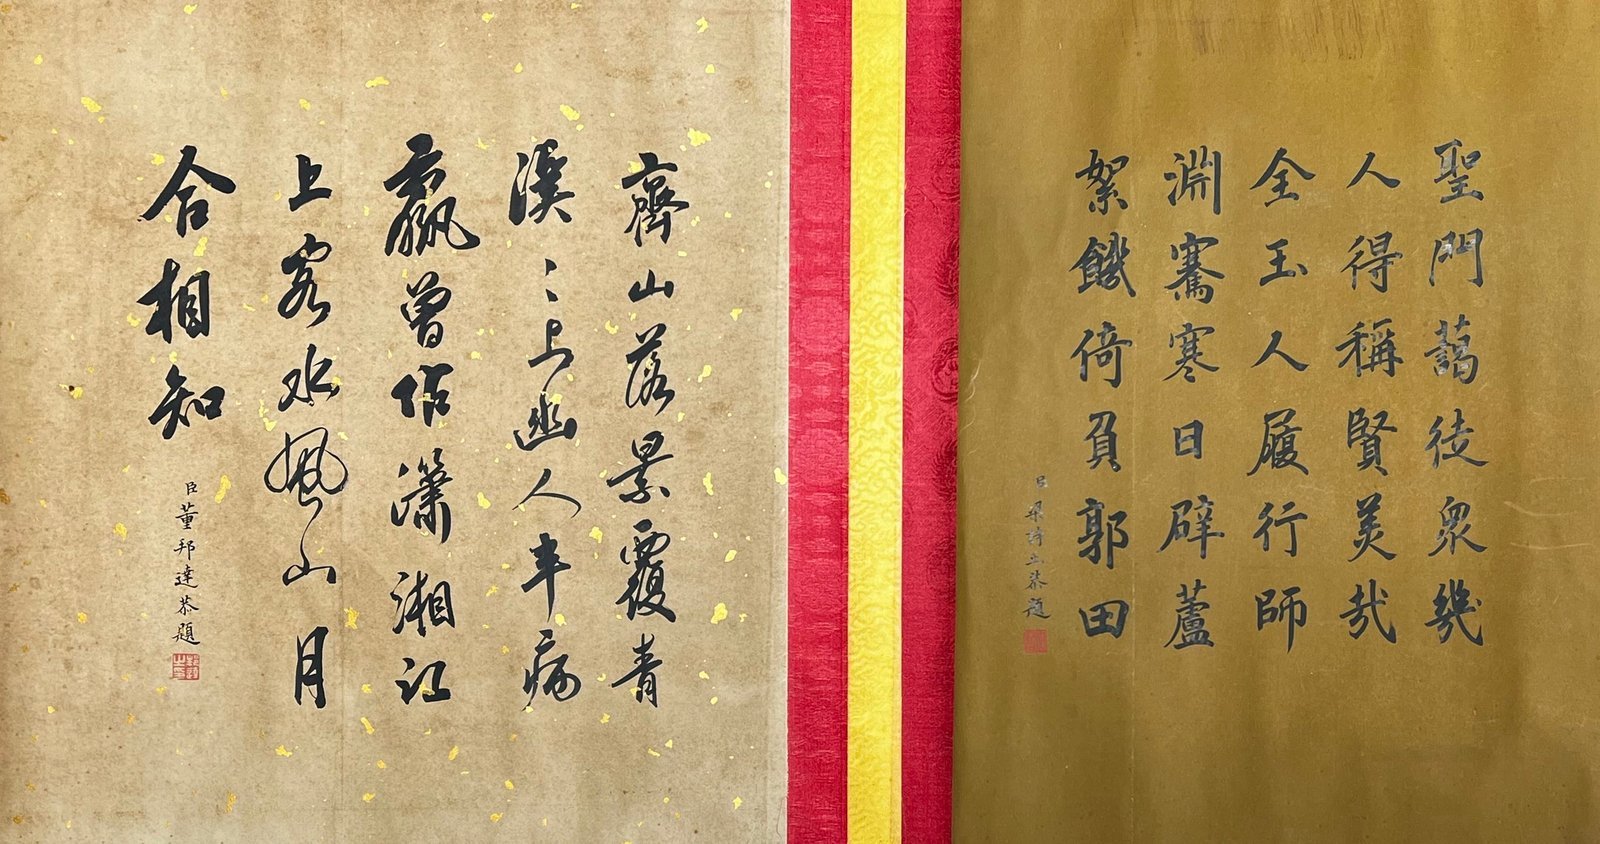 聖門藹徒衆幾
人得稱賢美哉
全玉人履行師
淵騫寒日辟蘆
絮饑倚負郭田
臣梁詩正恭題
齊山落景覆青
溪〻上幽人半病
羸曾作瀟湘江
上客水風山月
合相知
臣董邦達恭題